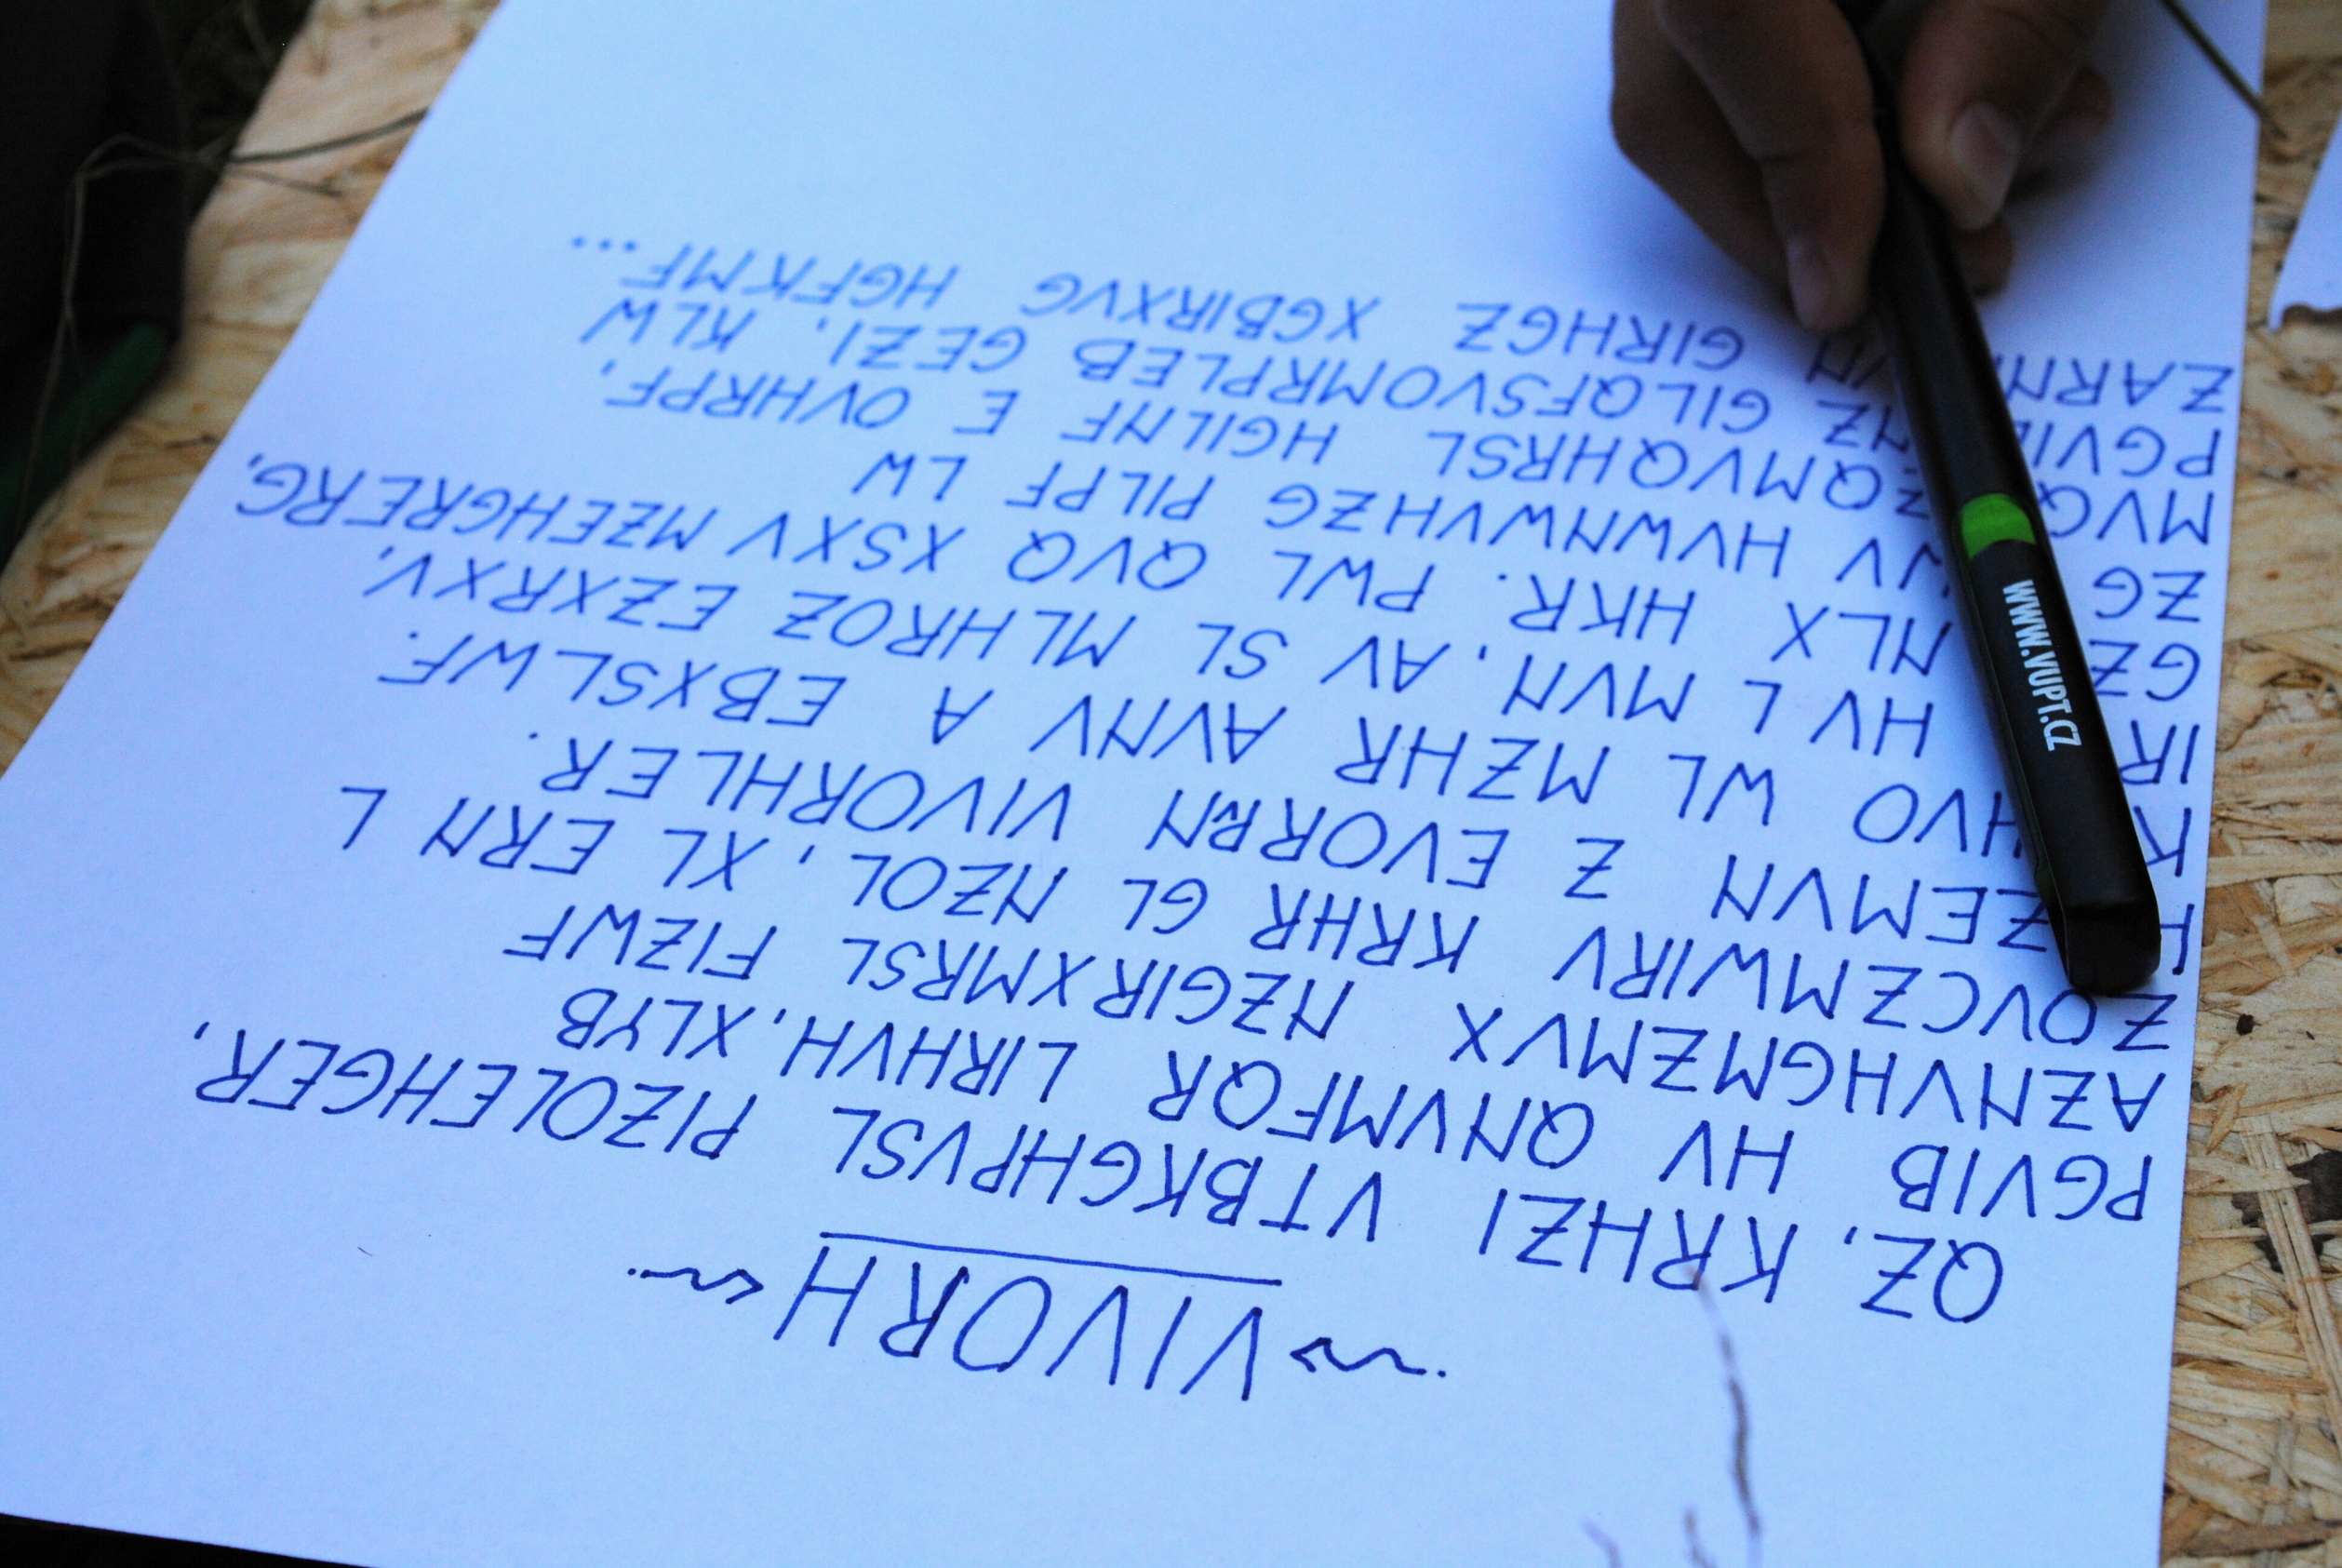 VIVORH
QZ, KRHZI VTBKGHPVSL PIZOLEHGER,
PGVIB HV QNVMFQR LIRHVH, XLYB
AZNVHGMZMVX NZGIRXMRSL FIZWF
ZOVCZMWIRV KRHR GL NZOL, XL ERN L
Z EVORRN VIVORHLER.
WL MZHR AVNV A EBXSLWF.
HV L MVN, AV SL MLHROZ EZXRXV,
NLX HKR. PWL QVQ XSXV MZEHGRERG,
ZG HVWNWVHZG PILPF LW
HGILNF E OVHRPF,
GILQFSVOMRPLEB GEZI, KLW
GIRHGZ XGBIRXVG HGFKMF...
WWW.VUPT.CZ